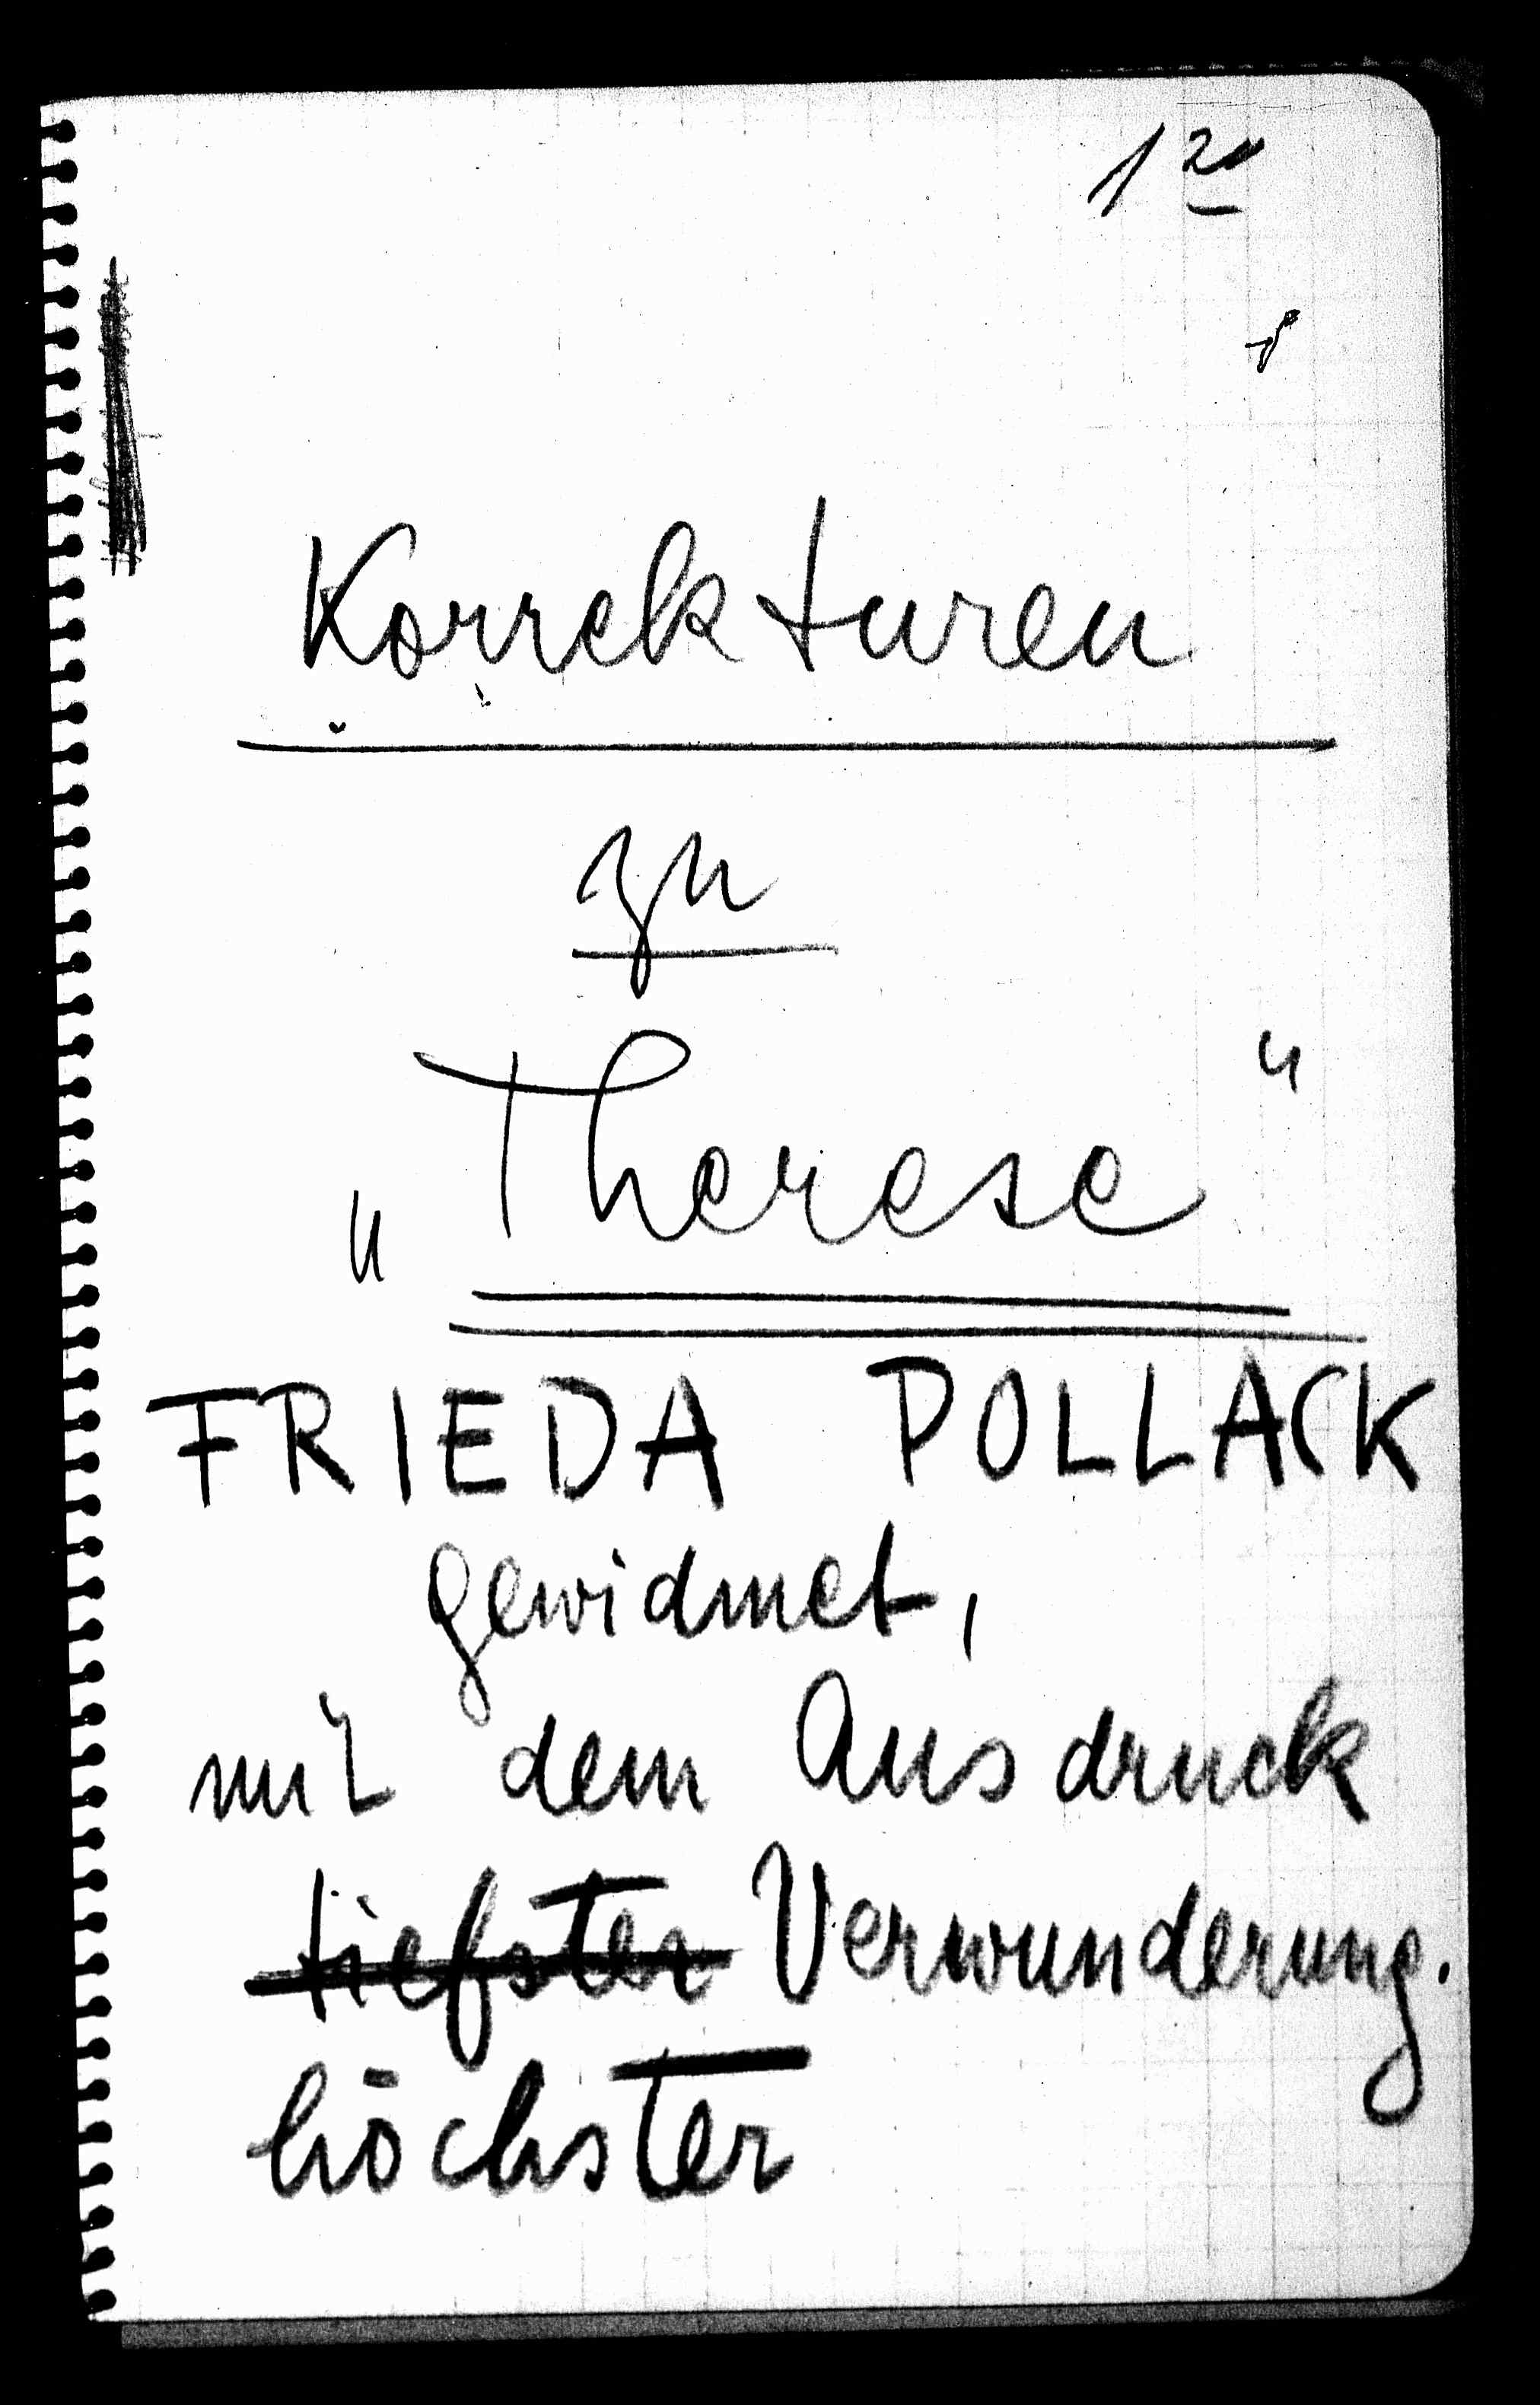 1 20
Korrekturen
zu
„Therese“
FRIEDA POLLACK
gewidmet,
mit dem Ausdruck
tiefster Verwunderung.
höchster